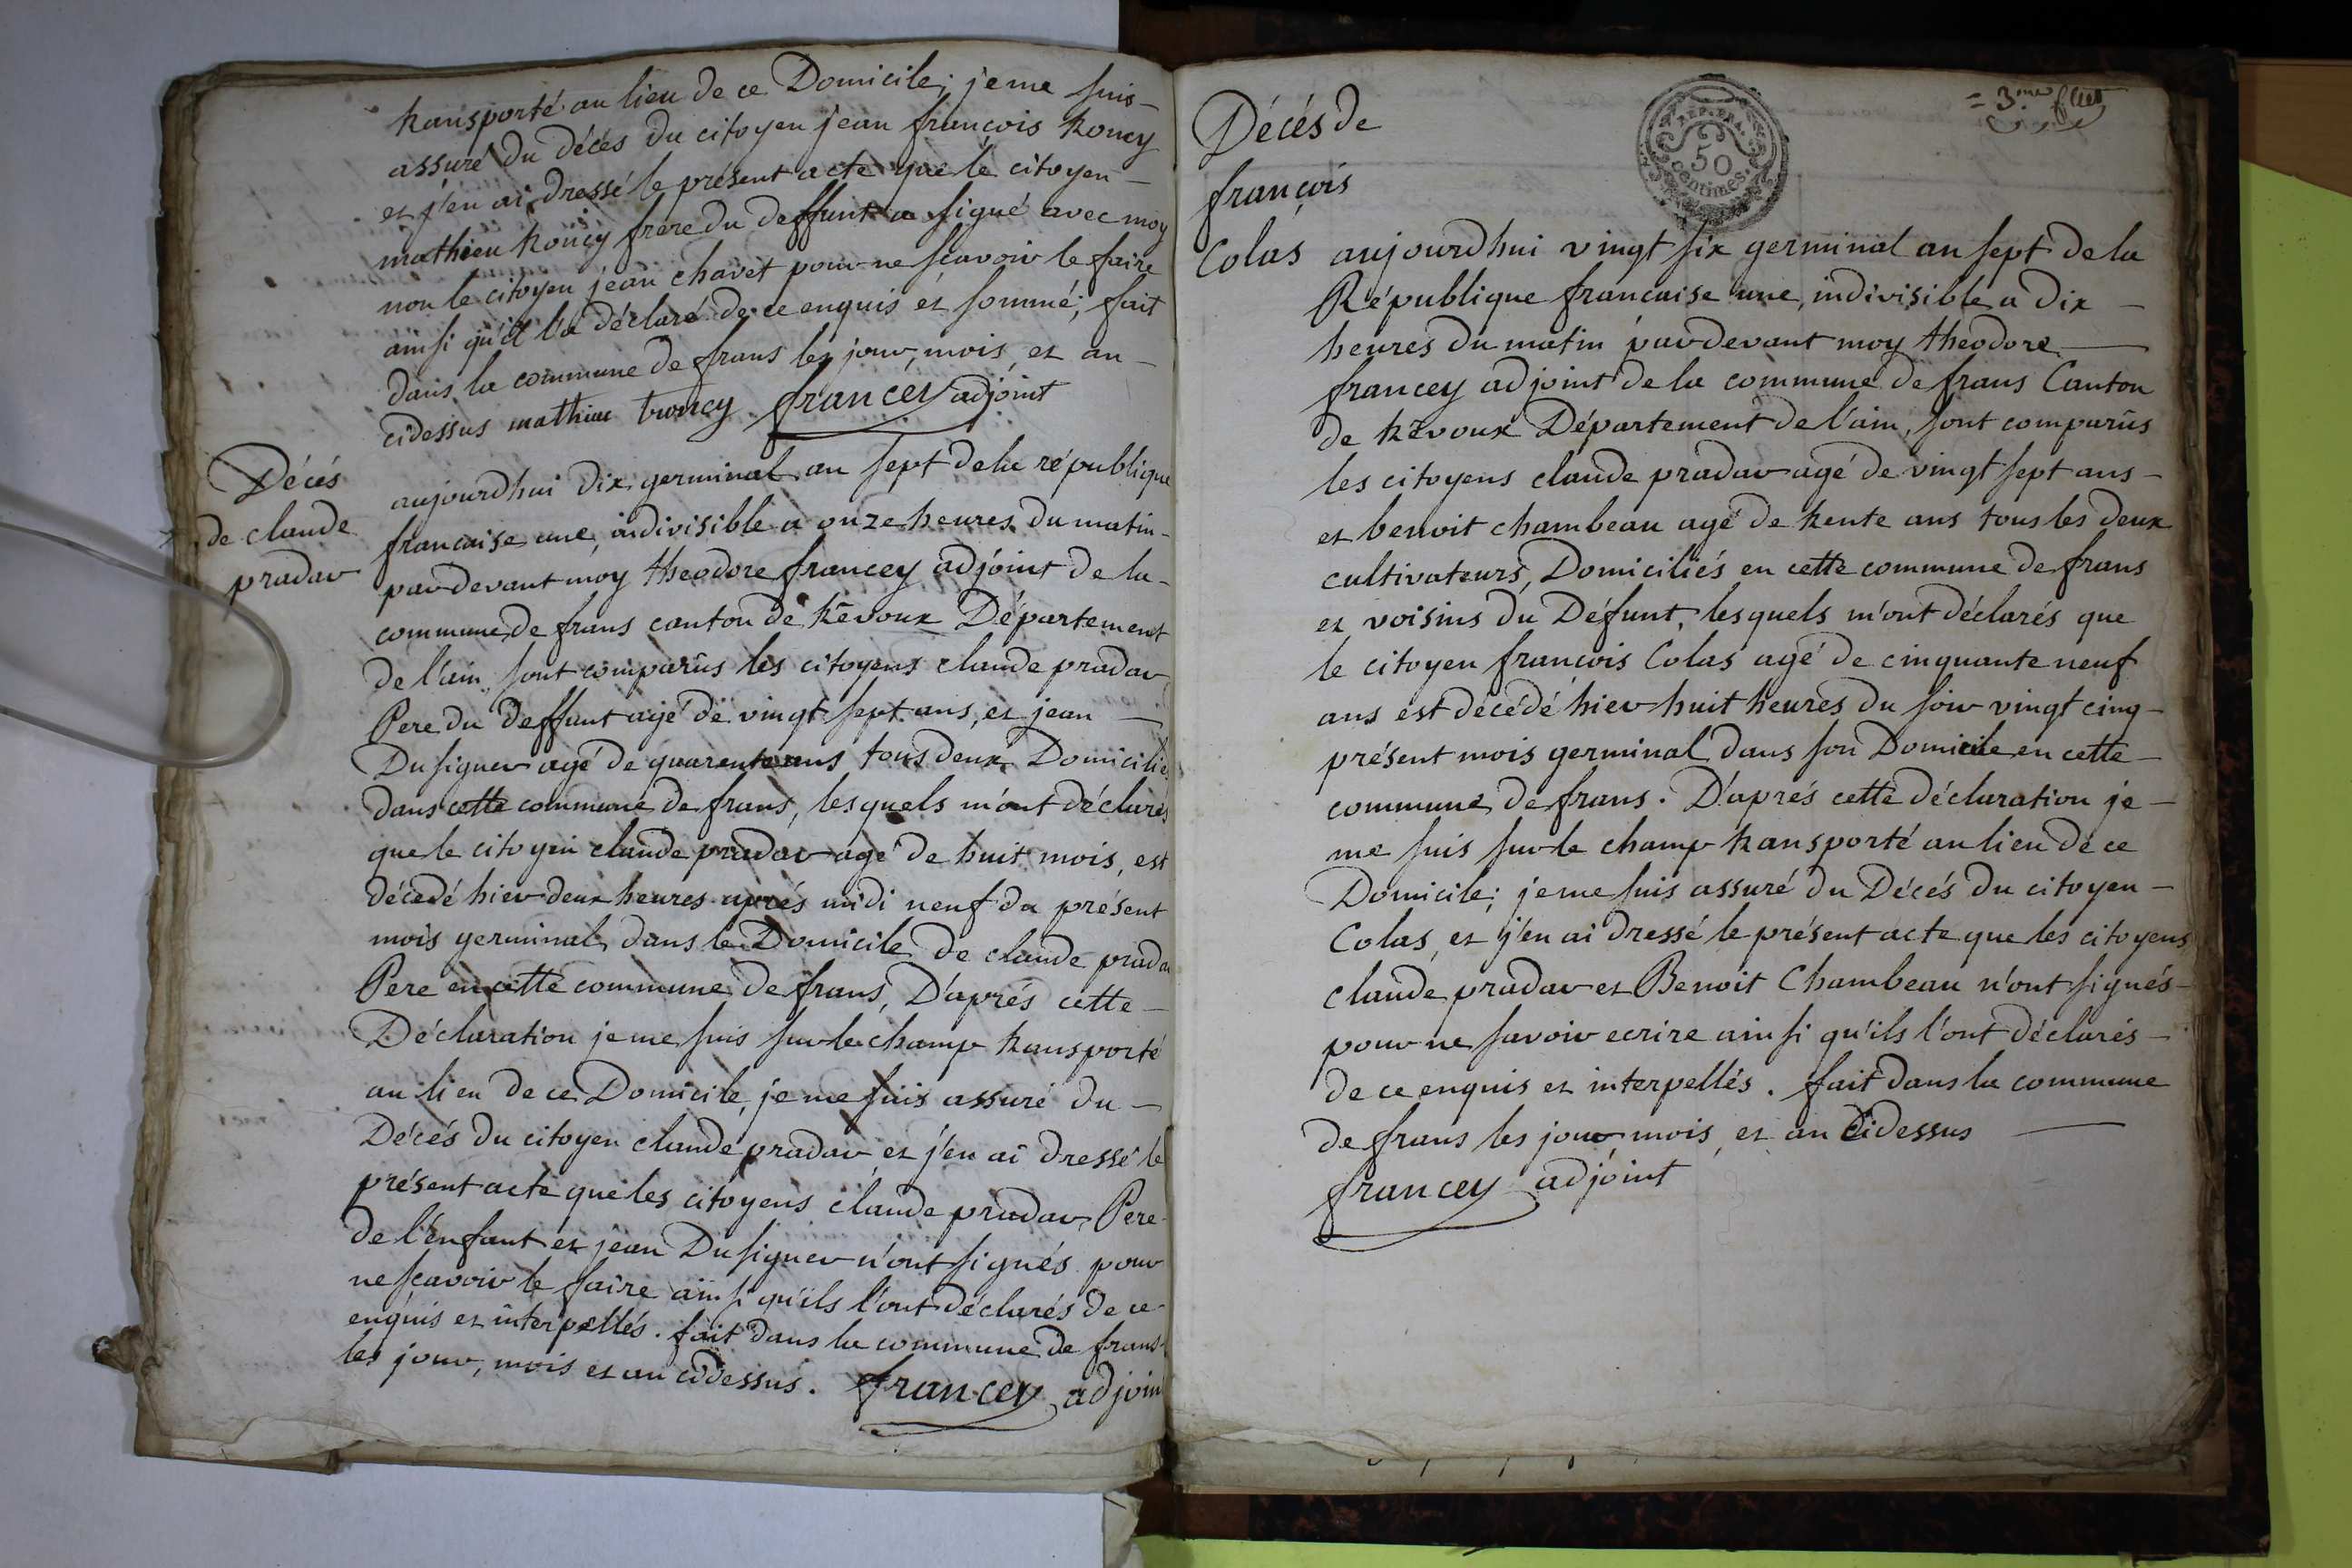 transporté au lieu de ce Domicile; je me suis –
assuré du décés du citoyen jean françois troncy
et j'en ai dressé le présent acte que le citoyen –
mathieu troncy frere du deffunt a signé avec moy
non le citoyen jean chavet pour ne sçavoir le faire
ainsi qu'il l'a déclaré de ce enquis et sommé; fait
dans la commune de frans les jour, mois, et an –
cidessus mathieu troncy francey adjoint
Décés
de claude
pradar
aujourdhui dix germinal an sept de la république
française une, indivisible a onze heures du matin –
pardevant moy theodore francey adjoint de la –
commune de frans canton de trévoux Département
de l'ain, sont comparûs les citoyens claude pradar
Pere du deffunt agé de vingt sept ans, et jean –
Dusigner agé de quarente ans tous deux Domiciliés
dans cette commune de frans, lesquels m'ont déclarés
que le citoyen claude pradar agé de huit mois, est
décedé hier deux heures aprés midi neuf du présent
mois germinal, dans le Domicile de claude prada
Pere en cette commune de frans, D'aprés cette –
Déclaration je me suis sur le champ transporté
au lieu de ce Domicile, je me suis assuré du –
Décés du citoyen claude pradar, et j'en ai dressé le
présent acte que les citoyens claude pradar Pere
de l'enfant et jean Dusigner n'ont signés pour
ne sçavoir le faire ainsi qu'ils l'ont déclarés de ce
enquis et interpellés. fait dans la commune de frans
les jour, mois et an cidessus. francey adjoin
= 3.me f.llet
REP. FRA.
50
centimes.
Décés de
françois
Colas
aujourdhui vingt six germinal an sept de la
République francaise une, indivisible a dix –
heures du matin pardevant moy theodore –
francey adjoint de la commune de frans Canton
de trévoux Département de l'ain, sont comparûs
les citoyens claude pradar agé de vingt sept ans –
et benoit chambeau agé de trente ans tous les deux
cultivateurs, Domiciliés en cette commune de frans
et voisins du Défunt, lesquels m'ont déclarés que
le citoyen francois Colas agé de cinquante neuf
ans est décédé hier huit heures du soir vingt cinq –
présent mois germinal dans son Domicile en cette –
commune de frans. D'aprés cette déclaration je –
me suis sur le champ transporté au lieu de ce
Domicile; je me suis assuré du Décés du citoyen –
Colas, et j'en ai dressé le présent acte que les citoyens
claude pradar et Benoit Chambeau n'ont signés –
pour ne savoir ecrire ainsi qu'ils l'ont déclarés –
de ce enquis et interpellés. fait dans la commune
de frans les jour mois, et an cidessus –
francey adjoint